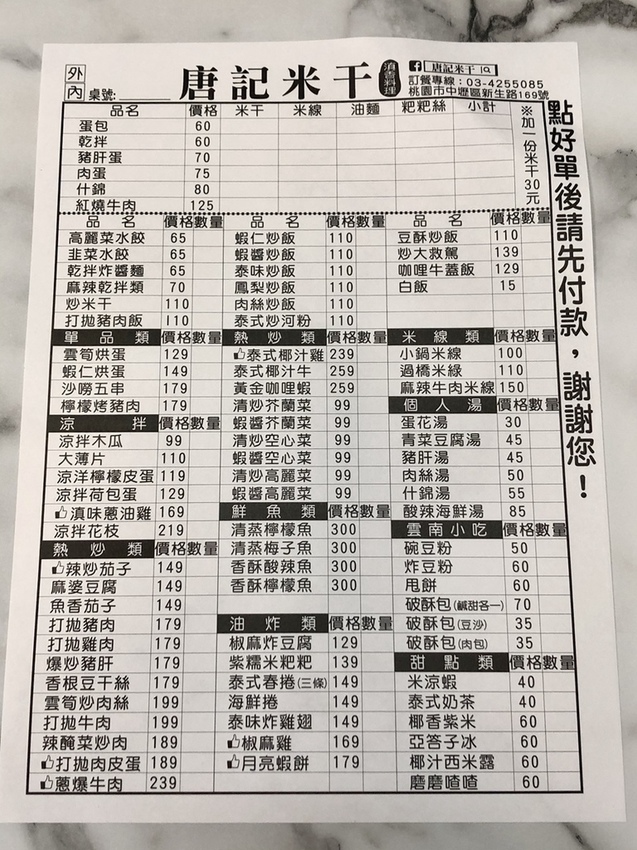 外
內 桌號:
唐記米干 滇香料理
唐記米干
訂餐專線:03-4255085
桃園市中壢區新生路169號
品名 價格 米干 米線 油麵 粑粑絲 小計
蛋包 60
乾拌 60
豬肝蛋 70
肉蛋 75
什錦 80
紅燒牛肉 125
※加一份米干30元
點好單後請先付款，謝謝您！
品名 價格 數量
高麗菜水餃 65
韭菜水餃 65
乾拌炸醬麵 65
麻辣乾拌類 70
炒米干 110
打拋豬肉飯 110
單品類 價格 數量
雲筍烘蛋 129
蝦仁烘蛋 149
沙嗙五串 179
檸檬烤豬肉 179
涼拌 價格 數量
涼拌木瓜 99
大薄片 110
涼洋檸檬皮蛋 119
涼拌荷包蛋 129
滇味蔥油雞 169
涼拌花枝 219
熱炒類 價格 數量
辣炒茄子 149
麻婆豆腐 149
魚香茄子 149
打拋豬肉 179
打拋雞肉 179
爆炒豬肝 179
香根豆干絲 179
雲筍炒肉絲 199
打拋牛肉 199
辣醃菜炒肉 189
打拋肉皮蛋 189
蔥爆牛肉 239
品名 價格 數量
蝦仁炒飯 110
蝦醬炒飯 110
泰味炒飯 110
鳳梨炒飯 110
肉絲炒飯 110
泰式炒河粉 110
熱炒類 價格 數量
泰式椰汁雞 239
泰式椰汁牛 259
黃金咖哩蝦 259
清炒芥蘭菜 99
蝦醬芥蘭菜 99
清炒空心菜 99
蝦醬空心菜 99
清炒高麗菜 99
蝦醬高麗菜 99
鮮魚類 價格 數量
清蒸檸檬魚 300
清蒸梅子魚 300
香酥酸辣魚 300
香酥檸檬魚 300
油炸類 價格 數量
椒麻炸豆腐 129
紫糯米粑粑 139
泰式春捲(三條) 149
海鮮捲 149
泰味炸雞翅 149
椒麻雞 169
月亮蝦餅 179
品名 價格 數量
豆酥炒飯 110
炒大救駕 139
咖哩牛蓋飯 129
白飯 15
米線類 價格 數量
小鍋米線 100
過橋米線 110
麻辣牛肉米線 150
個人湯 價格 數量
蛋花湯 30
青菜豆腐湯 45
豬肝湯 45
肉絲湯 50
什錦湯 55
酸辣海鮮湯 85
雲南小吃 價格 數量
碗豆粉 50
炸豆粉 60
甩餅 60
破酥包(鹹甜各一) 70
破酥包(豆沙) 35
破酥包(肉包) 35
甜點類 價格 數量
米涼蝦 40
泰式奶茶 40
椰香紫米 60
亞答子冰 60
椰汁西米露 60
磨磨喳喳 60